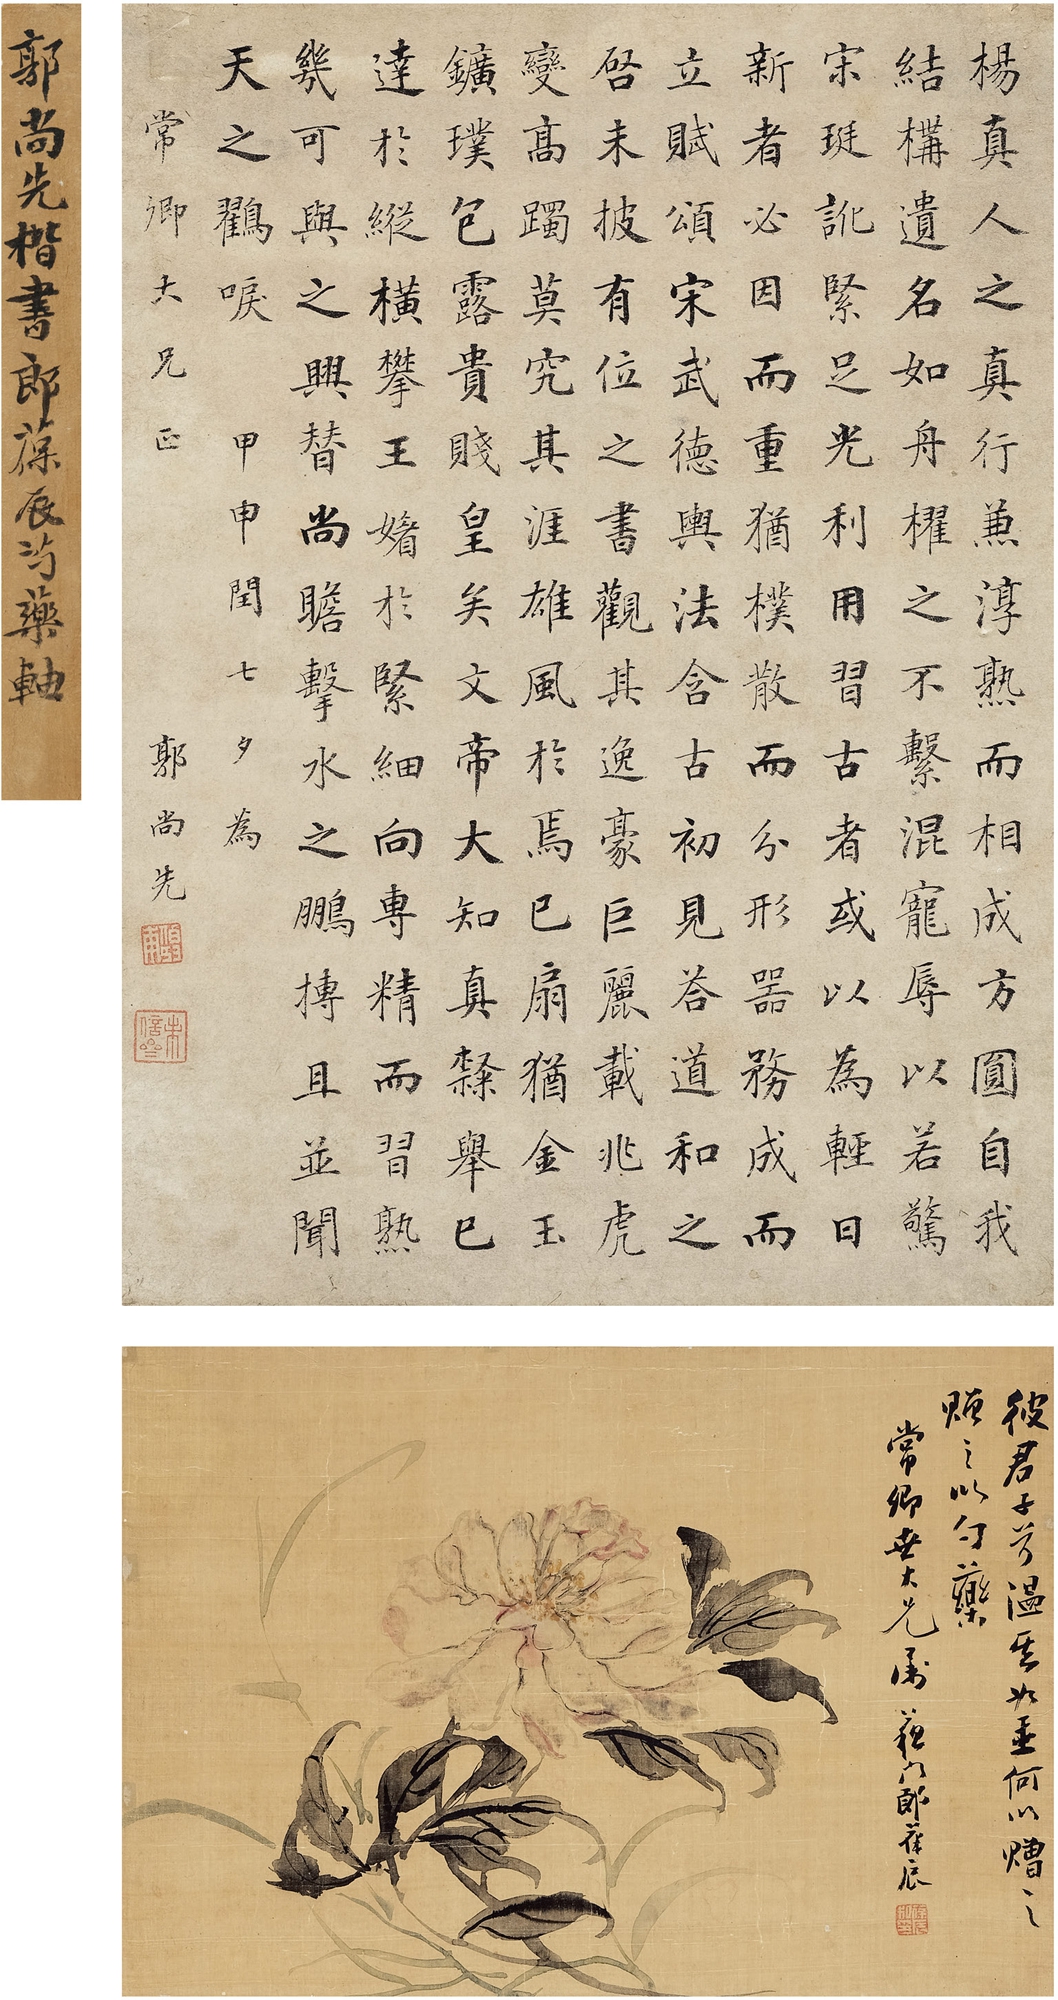 郭尚先楷書郎葆辰芍藥軸
楊真人之真行兼淳熟而相成方圓自我
結構遺名如舟櫂之不繫混寵辱以若驚
宋珽訛緊足光利用習古者或以為輕日
新者必因而重猶樸散而分形器務成而
立賦頌宋武德輿法含古初見答道和之
啓未披有位之書觀其逸豪巨麗載兆虎
變高躅莫究其涯雄風於焉已扇猶金玉
鑛璞包露貴賤皇矣文帝大知真隸舉已
達於縱橫攀王媎於緊細向專精而習熟
幾可與之興替尚瞻擊水之鵬摶且並聞
天之鸐唳 甲申閏七夕為
常卿大兄正 郭尚先
彼君子兮溫其如玉何以贈之
贈之以勺藥
常卿世大兄屬 蘓門郎葆辰